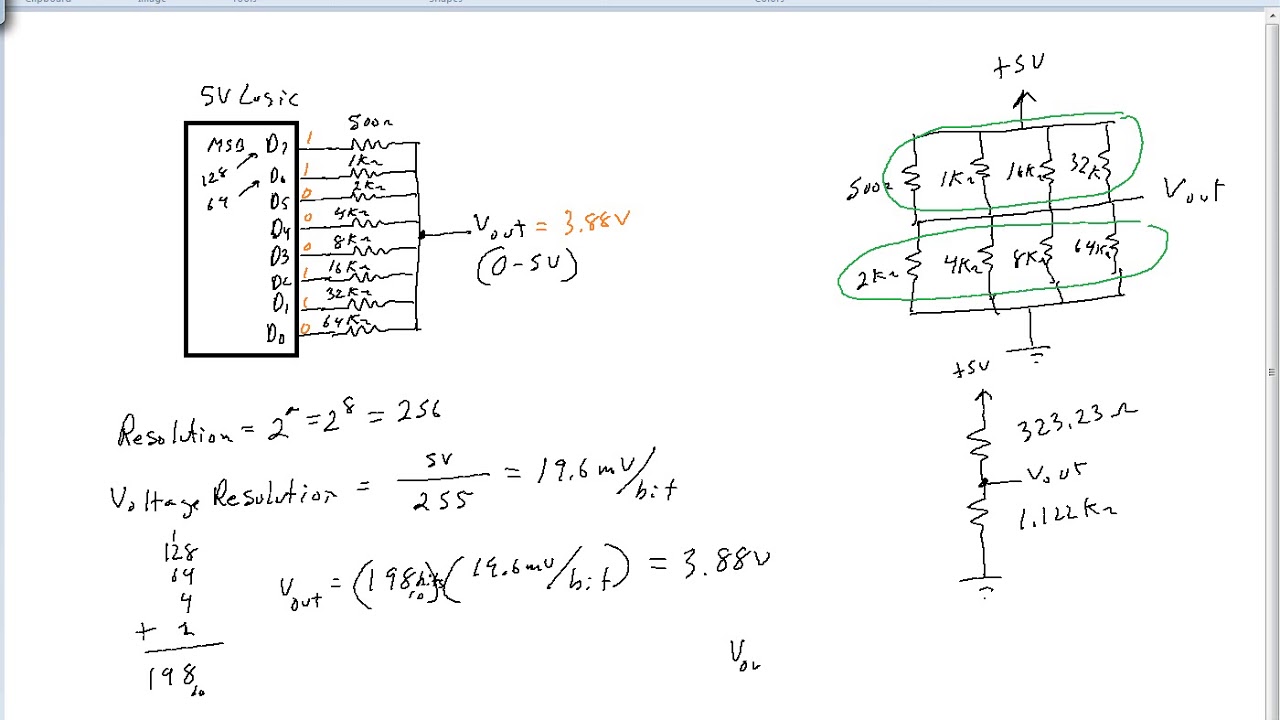 5V Logic
MSB D7 1 500Ω
128 D6 1 1KΩ
64 D5 0 2KΩ
D4 0 4KΩ
D3 0 8KΩ
D2 1 16KΩ
D1 1 32KΩ
D0 0 64KΩ
Vout = 3.88V
(0-5V)
+5V
500Ω 1KΩ 16KΩ 32K
Vout
2KΩ 4KΩ 8KΩ 64KΩ
+5V
323.23Ω
Vout
1.122KΩ
Resolution = 2^n = 2^8 = 256
Voltage Resolution = 5V / 255 = 19.6mV/bit
1
128
64
4
+ 2
198₁₀
Vout = (198₁₀ bits)(19.6mV/bit) = 3.88V
Vou